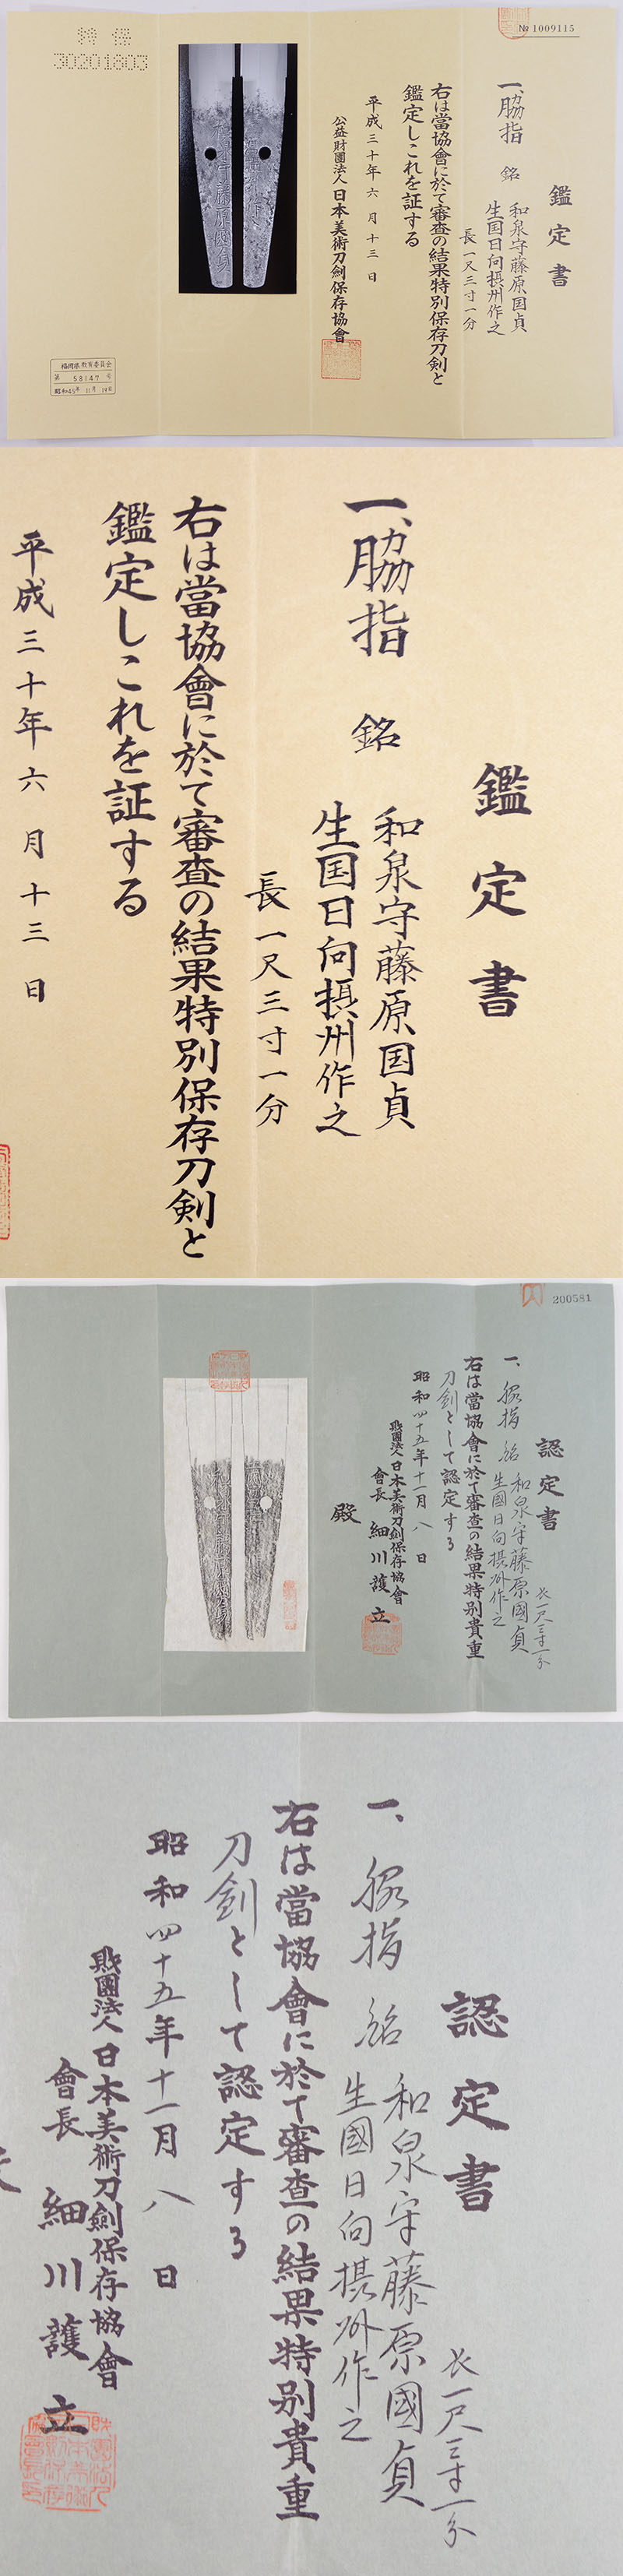 № 1009115
鑑定書
一、脇指 銘
和泉守藤原国貞
生国日向摂州作之
長一尺三寸一分
右は當協會に於て審査の結果特別保存刀剣と
鑑定しこれを証する
平成三十年六月十三日
公益財團法人日本美術刀劍保存協會
特保
30201803
福岡県教育委員会
第 58147 号
鑑定書
一、脇指 銘
和泉守藤原国貞
生国日向摂州作之
長一尺三寸一分
右は當協會に於て審査の結果特別保存刀剣と
鑑定しこれを証する
平成三十年六月十三日
200581
認定書
一、脇指 銘
和泉守藤原國貞
生國日向摂州作之
長一尺三寸一分
右は當協會に於て審査の結果特別貴重
刀剣として認定する
昭和四十五年十一月八日
財團法人日本美術刀劍保存協會
會長 細川護立
殿
認定書
長一尺三寸一分
一、脇指 銘
和泉守藤原國貞
生國日向摂州作之
右は當協會に於て審査の結果特別貴重
刀剣として認定する
昭和四十五年十一月八日
財團法人日本美術刀劍保存協會
會長 細川護立